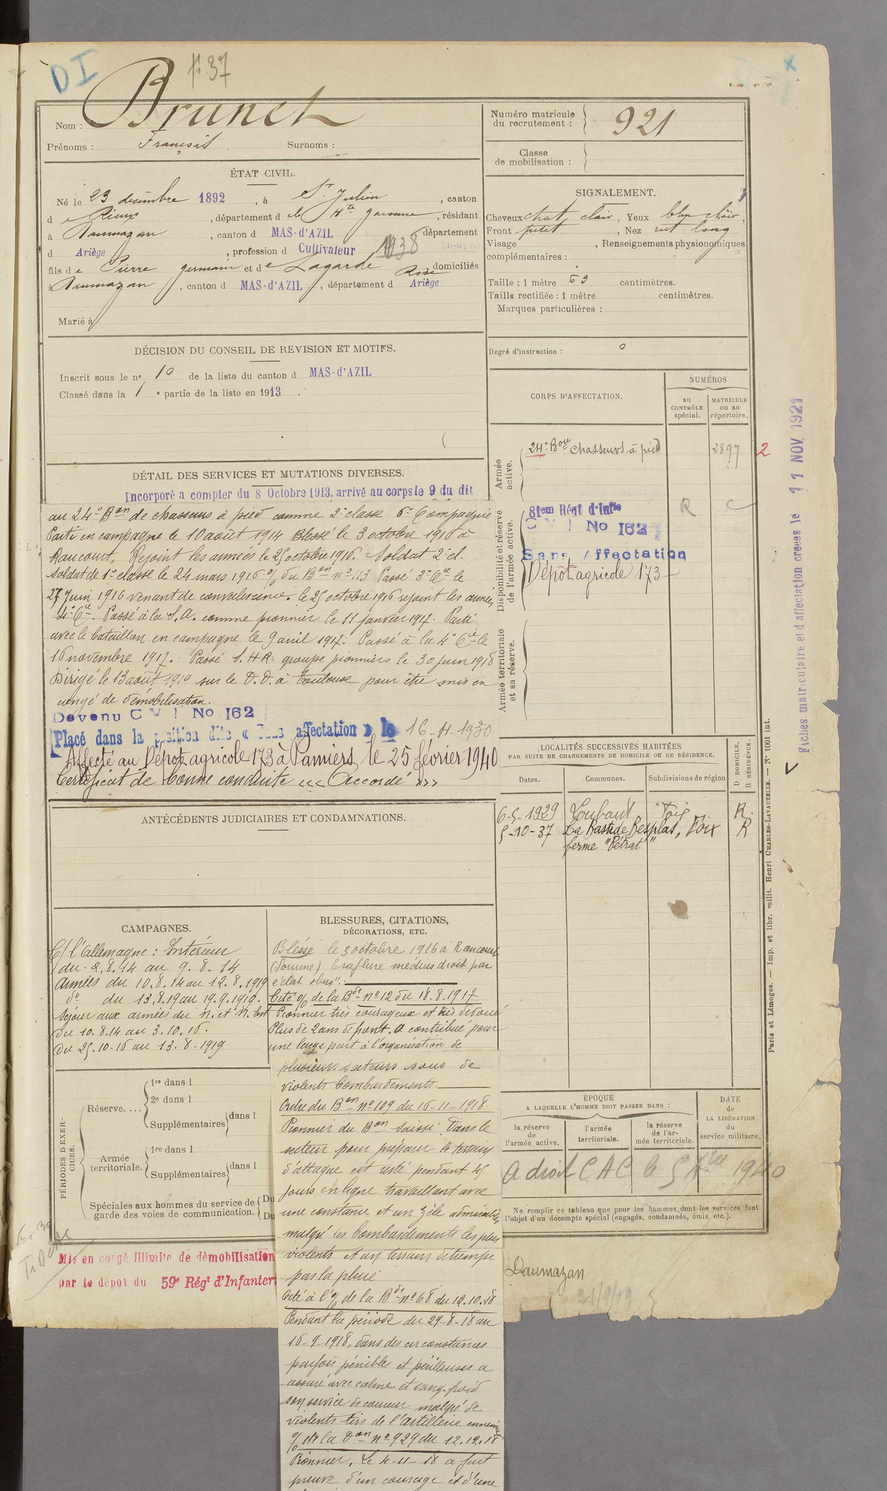 DI
f° 37
Nom : Brunet
Prénoms : Fransist Surnoms :
Numéro matricule
du recrutement : 921
Classe
de mobilisation :
ÉTAT CIVIL.
Né le 23 décembre 1892, à St Julien, canton
de Rieux, département de Hte Garonne, résidant
à Daumazan, canton d MAS-d'AZIL département
d Ariège, profession d Cultivateur 1938
fils de Pierre germain et de Lagarde, domiciliés
à Daumazan, canton d MAS-d'AZIL, département d Ariège
Marié à
SIGNALEMENT.
Cheveux chat. clair, Yeux bleu clair,
Front petit, Nez
Visage , Renseignements physionomiques
complémentaires :
Taille : 1 mètre 63 centimètres.
Taille rectifiée : 1 mètre centimètres.
Marques particulières :
Degré d'instruction : 0
DÉCISION DU CONSEIL DE REVISION ET MOTIFS.
Inscrit sous le n° 10 de la liste du canton d MAS-d'AZIL
Classé dans la 1e partie de la liste en 1913.
CORPS D'AFFECTATION.
NUMÉROS
AU CONTRÔLE spécial.
MATRICULE OU AU répertoire.
Armée active.
24e Bon Chasseurs à pied 2897 2
Disponibilité et réserve de l'armée active.
81em Régt d'Infie R C
C M I No 162
Sans Affectation
Dépôt agricole 173
Armée territoriale et sa réserve.
DÉTAIL DES SERVICES ET MUTATIONS DIVERSES.
Incorporé à compter du 8 Octobre 1913, arrivé au corps le 9 du dit
au 24e Bon de chasseurs à pied comme 2e classe 6e Compagnie
Parti en campagne le 10 août 1914 Blessé le 3 octobre 1916 à
Rancourt. Rejoint les armées le 25 octobre 1916. Soldat 2e cl.
Soldat de 1e classe le 24 mars 1916 O/ du Bon n° 113 Passé 3e Cie le
27 Juin 1916 venant de convalescence. le 25 octobre 1916 rejoint les armées
4e Cie. Passé à la S.A. comme pionnier le 11 janvier 1917. Parti
avec le bataillon en campagne le 9 avril 1917. Passé à la 4e Cie le
16 novembre 1917. Passé S.H.R. groupe pionniers le 30 juin 1918
Dirigé le 13 août 1919 sur le D.D. à Toulouse pour être mis en
congé de démobilisation.
Devenu C M I No 162
Placé dans la position dite « Sans affectation » le 16-11-1930
Affecté au Dépôt agricole 173 à Pamiers, le 25 février 1940
Certificat de bonne conduite «« Accordé »»
LOCALITÉS SUCCESSIVES HABITÉES
PAR SUITE DE CHANGEMENTS DE DOMICILE OU DE RÉSIDENCE.
Dates. Communes. Subdivisions de région D DOMICILE. R RÉSIDENCE.
6-5-1929 Loubaut Foix R.
5-10-37 La Bastide Besplas, Foix R
ferme "Pétrat"
ANTÉCÉDENTS JUDICIAIRES ET CONDAMNATIONS.
CAMPAGNES.
C/ l'Allemagne : Intérieur
du 2.8.14 au 9.8.14
Armées du 10.8.14 au 12.8.1919
d° du 13.8.19 au 19.9.1919.
Séjour aux armées du N. et N. Est
du 10.8.14 au 3.10.16.
du 25.10-16 au 13.8.1919
BLESSURES, CITATIONS,
DÉCORATIONS, ETC.
Blessé le 3 octobre 1916 à Rancourt
(Somme) Eraflure médius droit par
éclat obus".
Cité O/ de la Bde n° 12 du 18.8.1917
Pionnier très courageux et très dévoué
Plus de 2 ans de front. A contribué pour
une large part à l'organisation de
plusieurs secteurs sous de
violents bombardements
Ordre du Bon n° 109 du 16-11-1918
Pionnier du Bon
secteur pour préparer le terrain
d'attaque est resté pendant 45
jours en ligne travaillant avec
une constance et un zèle admirables
malgré les bombardements les plus
violents et un terrain détrempé
par la pluie
Cité à l'O/ de la Bde n° 68 du 12.10.18
Pendant la période du 29-8-18 au
16-9-1918, dans des circonstances
parfois pénibles et périlleuses a
assuré avec calme et sang-froid
son service de coureur malgré de
violents tirs de l'artillerie ennemie
O/ de la Don n° 929 du 12.12.18
Pionnier, Le 4-11-18 a fait
preuve d'un courage et d'une
PÉRIODES D'EXERCICES.
Réserve....
1re dans l
2e dans l
Supplémentaires dans l
Armée territoriale.
1re dans l
Supplémentaires dans l
Spéciales aux hommes du service de
garde des voies de communication.
Du
Du
ÉPOQUE
A LAQUELLE L'HOMME DOIT PASSER DANS :
la réserve de l'armée active.
l'armée territoriale.
la réserve de l'armée territoriale.
DATE de LA LIBÉRATION du service militaire.
A droit C A C le 5 1940
Ne remplir ce tableau que pour les hommes dont les services font
l'objet d'un décompte spécial (engagés, condamnés, omis, etc.).
Mis en congé illimité de démobilisation
par le dépôt du 59e Régt d'Infanterie
Daumazan
21/9/19
Fiches matriculaire et d'affectation créées le 11 NOV. 1921
Paris et Limoges. — Imp. et libr. milit. Henri CHARLES-LAVAUZELLE. — N° 1001 int.